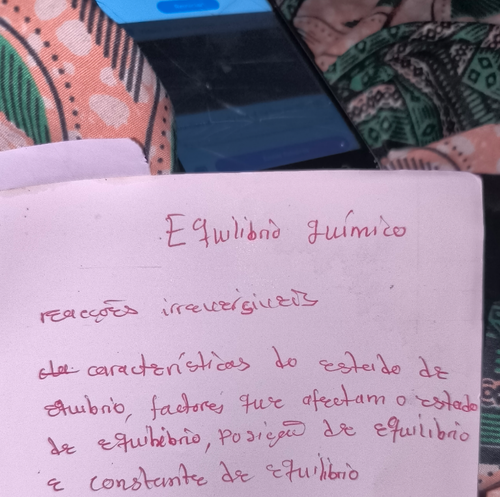 Equlibrio químico
reacções irreversiveis
características do estado de
equibrio, factores que afectam o estado
de equilibrio, posição de equilibrio
e constante de equilibrio